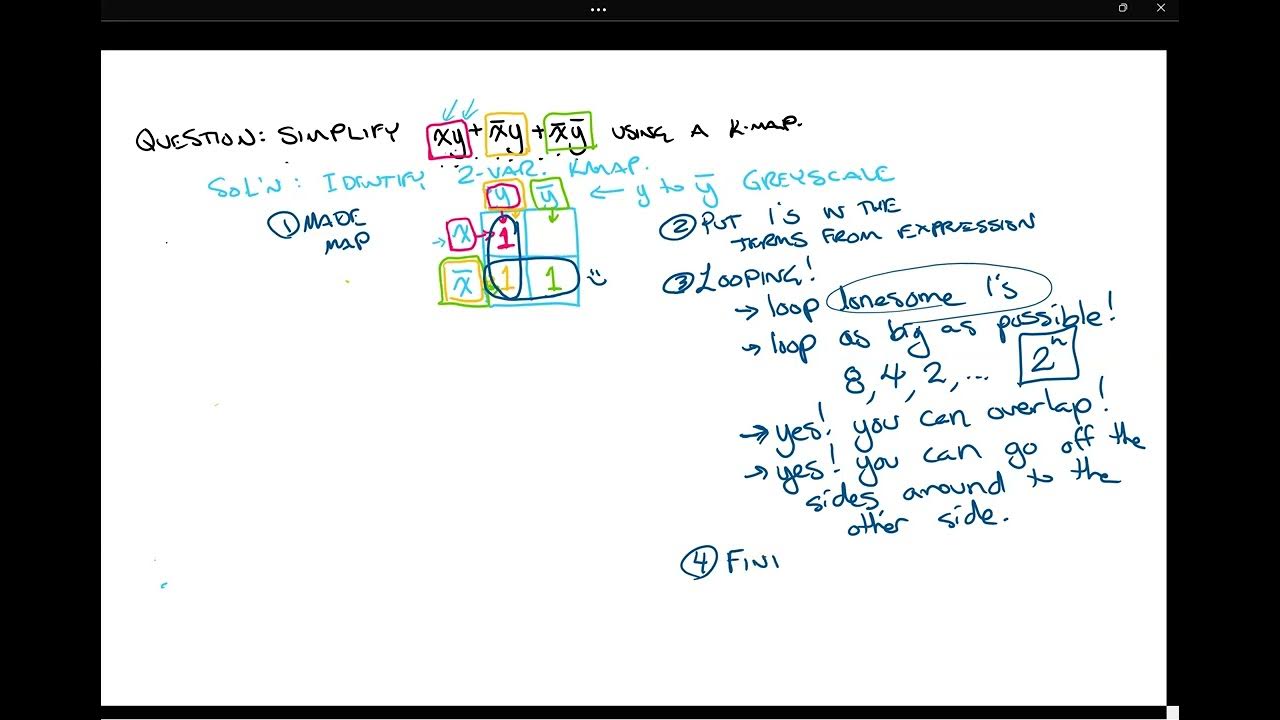 QUESTION: SIMPLIFY xy + x̅y + x̅y̅ USING A K-MAP.
SOL'N: IDENTIFY 2-VAR. KMAP.
y y̅ ← y to y̅ GREYSCALE
① MADE MAP
x 1
x̅ 1 1
② PUT 1's IN THE
TERMS FROM EXPRESSION
③ LOOPING!
→ loop lonesome 1's
→ loop as big as possible!
8, 4, 2, ... 2ⁿ
→ yes! you can overlap!
→ yes! you can go off the
sides around to the
other side.
④ FINI